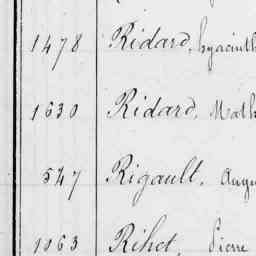 1478 Ridard, hyacinth
1630 Ridard, Math
547 Rigault, Augu
1063 Rihet, Pierre